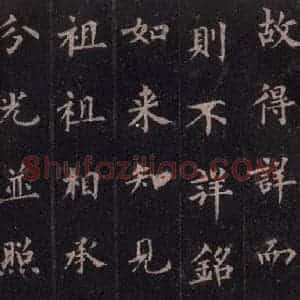 故得詳而
則不詳銘
如来知見
祖祖相承
分光並照
Shufaziliao.COM